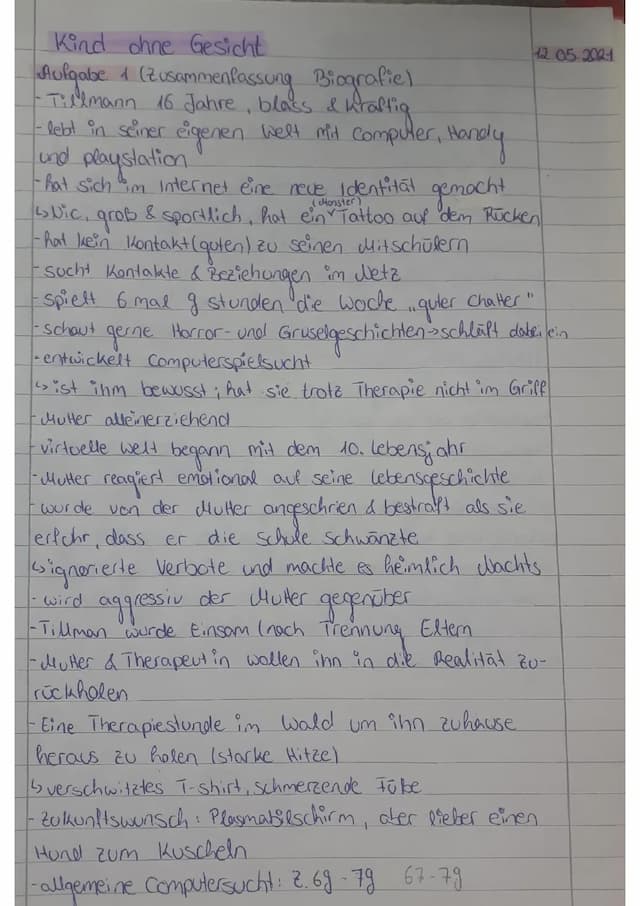 Kind ohne Gesicht
12.05.2021
Aufgabe 1 (Zusammenfassung Biografie)
- Tillmann 16 Jahre, blass & kräftig
- lebt in seiner eigenen Welt mit Computer, Handy
und playstation
- hat sich im Internet eine neue Identität gemacht
(Monster)
↳ Nic, groß & sportlich, hat ein Tattoo auf dem Rücken
- hat kein Kontakt (guten) zu seinen Mitschülern
- sucht Kontakte & Beziehungen im Netz
- spielt 6 mal 9 stunden die Woche „guter Chatter"
- schaut gerne Horror- und Gruselgeschichten → schläft dabei ein
- entwickelt Computerspielsucht
↳ ist ihm bewusst; hat sie trotz Therapie nicht im Griff
- Mutter alleinerziehend
- virtuelle Welt begann mit dem 10. Lebensjahr
- Mutter reagiert emotional auf seine Lebensgeschichte
- wurde von der Mutter angeschrien & bestraft als sie
erfuhr, dass er die Schule schwänzte
↳ ignorierte Verbote und machte es heimlich Nachts
- wird aggressiv der Mutter gegenüber
- Tillman wurde Einsam (nach Trennung Eltern
- Mutter & Therapeutin wollen ihn in die Realität zu-
rückholen
- Eine Therapiestunde im Wald um ihn zuhause
heraus zu holen (starke Hitze)
↳ verschwitztes T-shirt, schmerzende Füße
- Zukunftswunsch: Plasmabilschirm, aber lieber einen
Hund zum Kuscheln
- allgemeine Computersucht: Z. 69 - 79 67-79